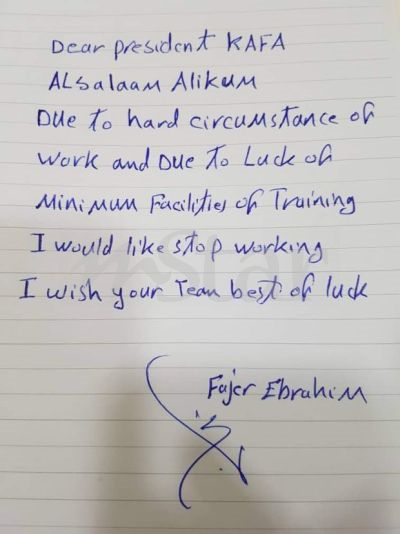 Dear president KAFA
ALsalaam Alikum
Due to hard circumstance of
work and Due to Luck of
Minimum Facilities of Training
I would like stop working
I wish your Team best of luck
Fajer Ebrahim